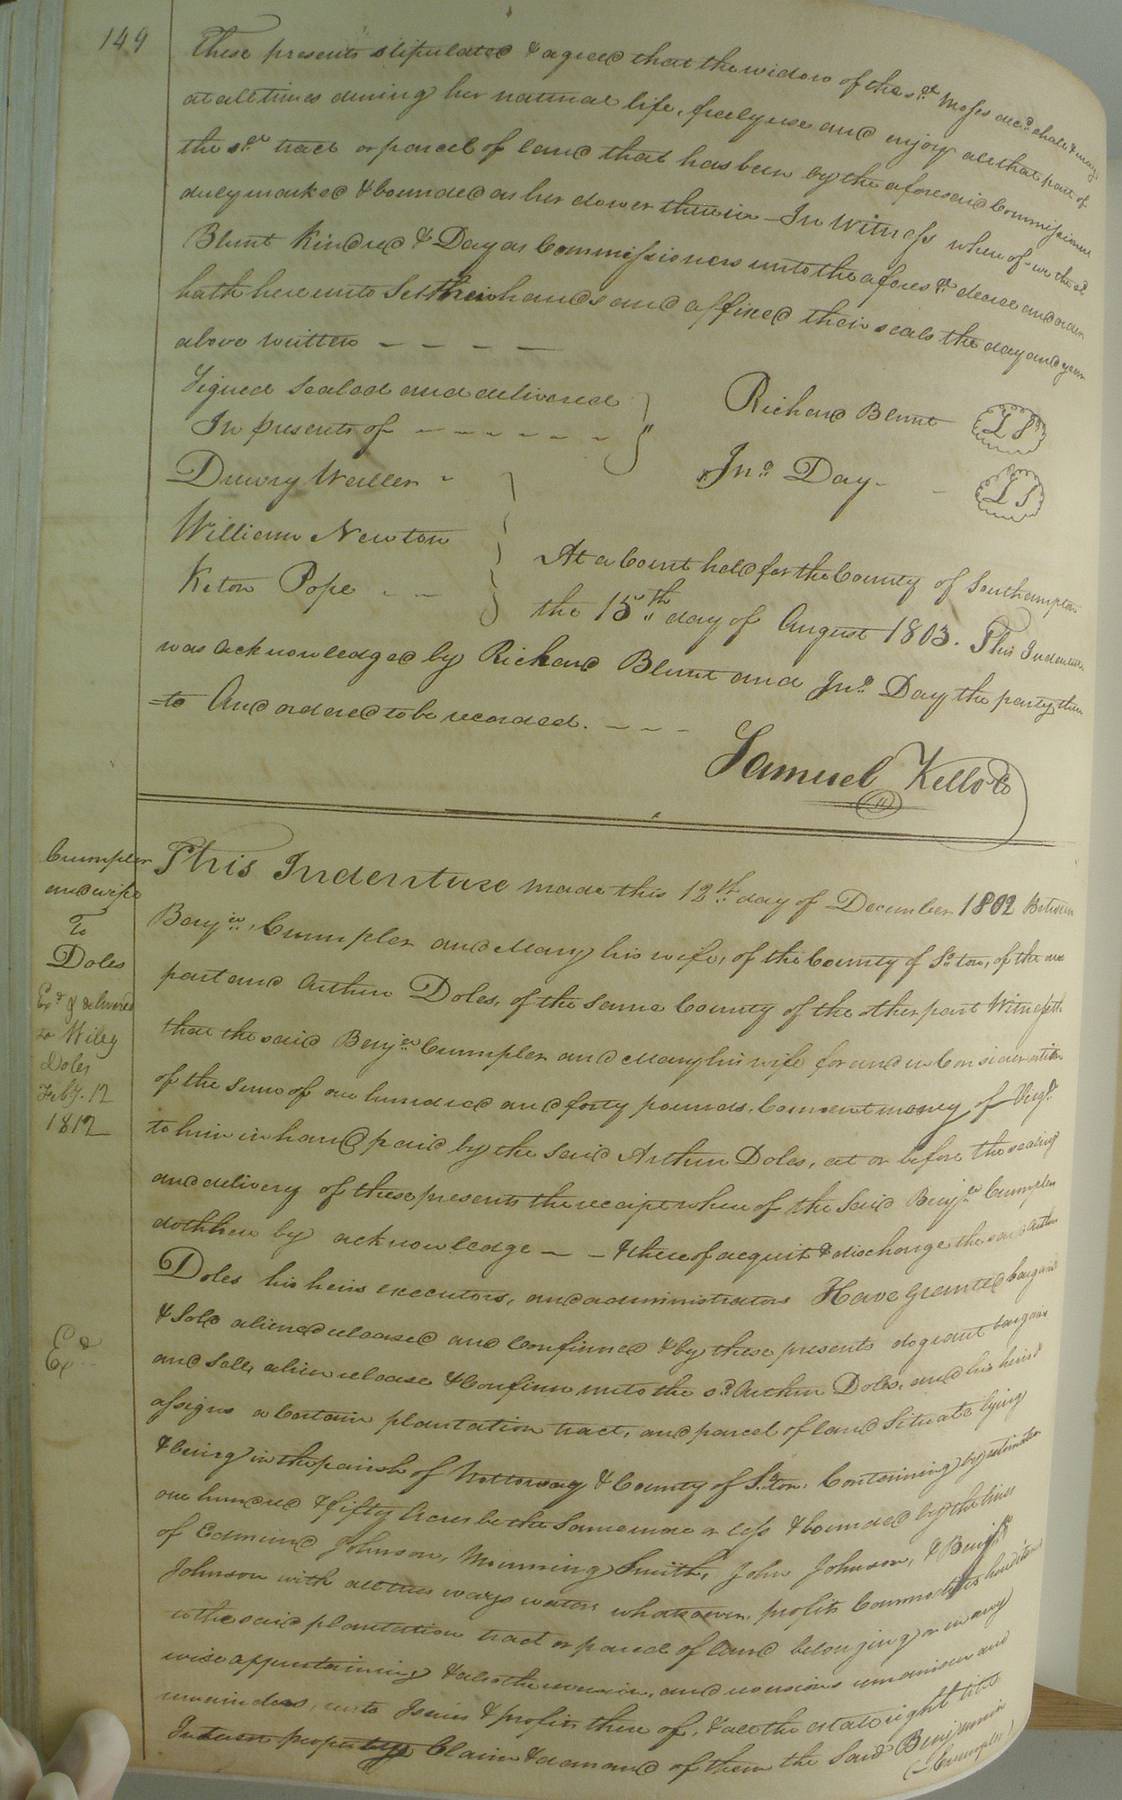 149
These presents stipulated & agreed that the widow of the sd. Moses decd. shall & may
at all times during her natural life, freely use and enjoy all that part of
the sd. tract or parcel of land that has been by the aforesaid Commissioners
duly marked & bounded as her dower therein — In Witness whereof we the sd
Blunt Kindred & Day as Commissioners unto the afores.d decree and order
hath hereunto Set their hands and affixed their seals the day and year
above written — — — —
Signed Sealed and delivered
In presents of — — — — — —
Richard Blunt LS
Jno. Day — — LS
Drewry Waller -
William Newton
Keton Pope - —
At a Court held for the County of Southampton
the 15th day of August 1803. This Indenture
was acknowledged by Richard Blunt and Jno. Day the party there
=to And ordered to be recorded. — — —
Samuel Kello Cs
Crumpler
and wife
To
Doles
Exd. & delivered
to Wiley
Doles
Feby. 12
1812
Exd
This Indenture made this 12th day of December 1802 Between
Benja. Crumpler and Mary his wife, of the County of So.ton, of the one
part and Arthur Doles, of the same County of the other part Witnesseth
that the said Benja. Crumpler and Mary his wife for and in Consideration
of the sum of one hundred and forty pounds, Current money of Virga.
to him in hand paid by the said Arthur Doles, at or before the sealing
and delivery of these presents the receipt whereof the said Benja. Crumpler
doth hereby acknowledge — — & thereof acquit & discharge the said Arthur
Doles his heirs executors, and administrators Have Granted bargained
& Sold aliened released and Confirmed & by these presents do grant bargain
and Sell, alien release & Confirm unto the sd. Arthur Doles, and his heirs &
assigns a Certain plantation tract, and parcel of land Situate lying
& being in the parish of Nottoway & County of So.ton. Containing by estimation
one hundred & fifty Acres be the Same more or less & bounded by the lines
of Edmund Johnson, Munning Smith, John Johnson, & Benja.
Johnson with all the ways waters whatsoever, profits Commodities hereditaments
to the said plantation tract or parcel of land belonging or in any
wise appertaining & also the reversion, and reversions remainder and
remainders, rents Issues & profits there of, & all the estate right title
Interest property Claim & demand of them the Said Benjamin
(— Crumpler)